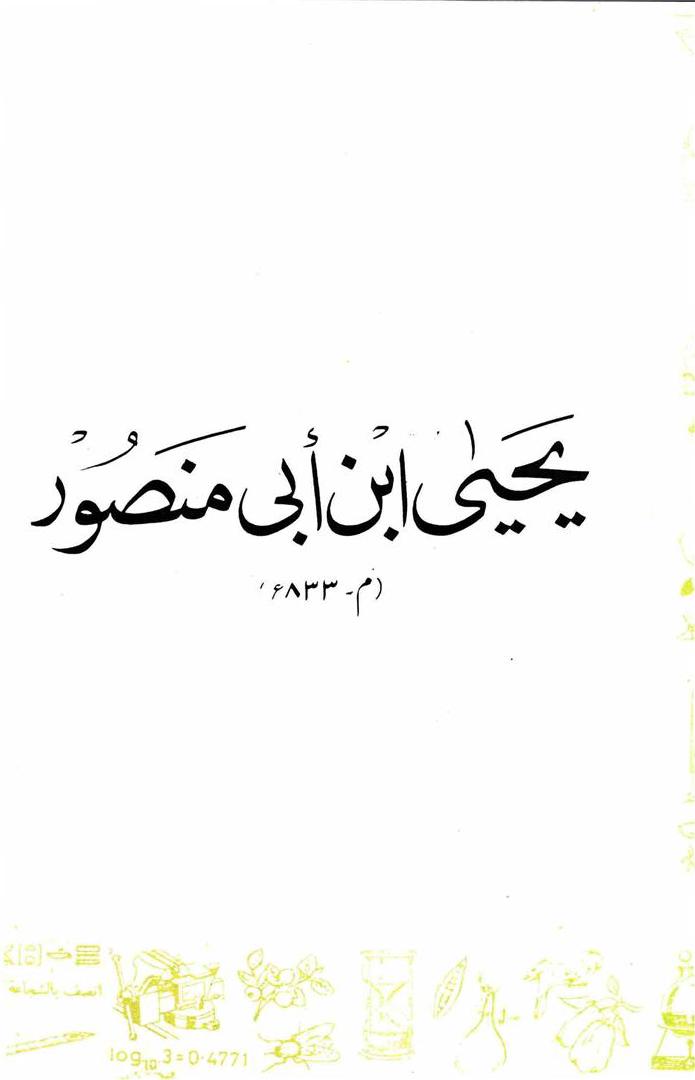 يَحيٰى ابْن أَبي مَنصُورْ
(م - ۸۳۳ء)
اتصف بالشجاعة
log₁₀3=0·4771